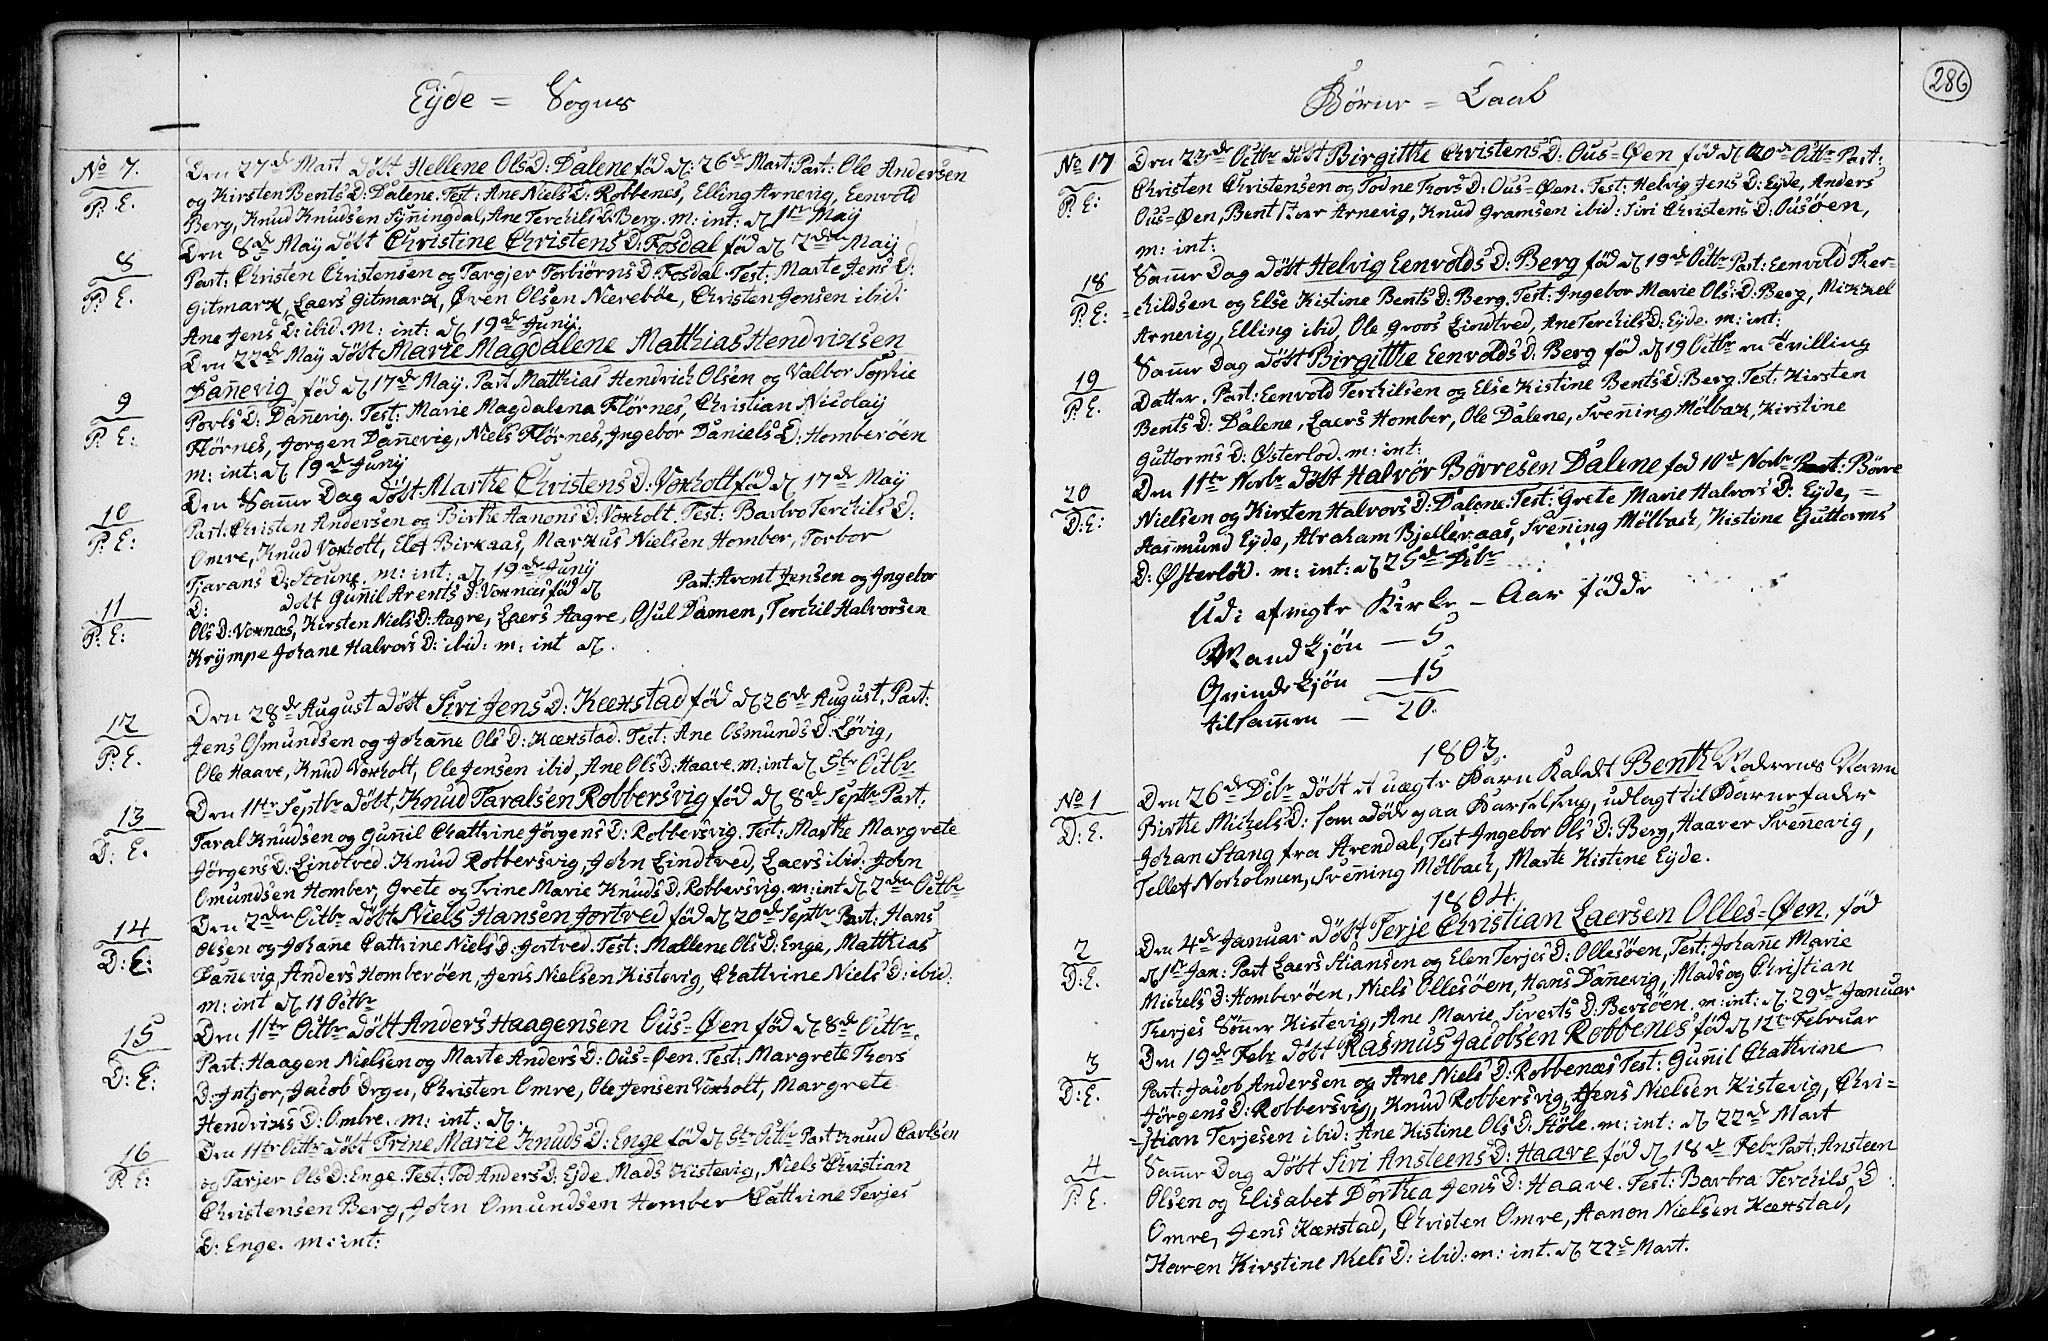 Eyde = Sogns
No 7.
P: E.
Den 27de Mart døbt Hellene OlsD: Dalene fød d: 26de Mart: Part: Ole Andersen
og Kirsten Bents D: Dalene. Test: Ane Niels D: Robbenes, Elling Arnevig, Eenvold
Berg, Knud Knudsen Syñingdal, Ane Terchils D. Berg. m: int: d 1te May
8
P: E.
Den 8de May døbt Christine Christens D: Fosdal fød d 2den May
Part: Christen Christensen og Targjer Torbiørns D: Fosdal. Test: Marte Jens D:
Gitmark, Laers Gitmark, Øven Olsen Nærebøe, Christen Jensen ibid:
Ane Jens D: ibid. m: int: d 19de Junij
9
P: E:
Den 22de May døbt Marie Magdalene Matthias Hendrixsen
Dañevig fød d 17de May. Part Matthias Hendrich Olsen og Valbor Sophie
Povls D: Dañevig. Test: Marie Magdalena Flørnes, Christian Nicolaij
Flørnes, Jørgen Dañevig, Niels Flørnes, Jngebor Daniels D: Homberøen
m: int: d 19de Junij
10
P: E:
Den Samme Dag døbt Marthe Christens D: Voxholt fød d 17de May
Part: Christen Andersen og Birthe Aanons D: Voxholt. Test: Barbro Terchils D:
Omre, Knud Voxholt, Elef Birkaas, Markus Nielsen Homber, Torbor
Tjarans D: Steune. m: int: d 19de Junij
11
P: E:
D: døbt Guñil Arents D: Voxnæs fød d Part: Arent Jensen og Jngebor
Ols D: Voxnæs, Kirsten Niels D: Aagre, Laers Aagre, Osul Damen, Terchil Halvorsen
Krÿmpe Johane Halvors D: ibid: m: int d.
12
P: E.
Den 28de August døbt Siri Jens D: Kæxstad fød d 26de August. Part:
Jens Osmundsen og Johañe Ols D: Kæxstad. Test: Ane Osmunds D: Løvig,
Ole Haave, Knud Voxholt, Ole Jensen ibid, Ane Ols D: Haave. m: int d 5te Octbr
13
D: E.
Den 11te Septbr døbt, Knud Taralsen Robbersvig fød d 8de Septbr Part.
Taral Knudsen og Guñil Chattrine Jørgens D: Robbersvig. Test: Marthe Margrete
Jørgens D: Lindtved. Knud Robbersvig, John Lindtved, Laers ibid. John
Omundsen Homber, Grete og Trine Marie Knuds D. Robbersvig. m: int d 2den Octbr
14
D: E:
Den 2den Octbr døbt Niels Hansen Jortved fød d 20de Septbr Part: Hans
Olsen og Johane Cattrine Niels D: Jortved. Test: Mallene Ols D: Enge, Matthias
Dañevig, Anders Homberøen, Jens Nielsen Kistevig, Chattrine Niels D: ibid:
m: int d 11 Octbr
15
D: E:
Den 11te Octbr døbt Anders Haagensen Ous-Øen fød d 8de Octbr.
Part: Haagen Nielsen og Marte Anders D: Ous-Øen. Test: Margrete Thors
D: Jntjor, Jacob Drges, Christen Omre, Ole Jensen Voxholt, Margrete
Hendrixs D: Ombre. m: int. d.
16
P: E:
Den 11te Octbr døbt Trine Marie Knuds D: Enge fød d 5te Octbr Part Knud Carlsen
og Tarjer Ols D: Enge. Test: Tod Anders D: Ejde Mads Kistevig, Niels Christian
Christensen Berg, John Omundsen Homber Cattrine Terjes
D: Enge. m: int:
Børne = Daab
286
No 17
P: E:
Den 23de Octbr døbt Birgitthe Christens D: Ous-Øen fød d 20de Octbr Part:
Christen Christensen og Todne Thors D: Ous-Øen. Test: Helvig Jens D: Eyde, Anders
Ous-Øen, Bent Arnevig, Knud Gramsen ibid: Siri Christens D: Ousøen,
m: int:
18
P: E:
Samme Dag døbt Helvig Eenvolds D: Berg fød d 19de Octbr Part: Eenvold Ther-
=childsen og Else Kistine Bents D: Berg. Test: Jngebor Marie Ols D: Berg, Mikkel
Arnevig, Elling ibid, Ole Groos Lindtved, Ane Terchils D: Eyde. m: int:
19
P: E.
Samme Dag døbt Birgitthe Eenvolds D. Berg fød d 19 Octbr en Tvilling
Datter. Part: Eenvold Terchilsen og Else Kistine Bents D: Berg. Test: Kirsten
Bents D: Dalene, Laers Homber, Ole Dalene, Sveñing Mølbak, Kirstine
Guttorms D: Østerlod. m: int:
20
D: E:
Den 11te Novbr døbt Halvor Børresen Dalene fød 10de Novbr Part: Børre
Nielsen og Kirsten Halvors D: Dalene. Test: Grete Marie Halvors D: Eyde, =
Aasmund Eyde, Abraham Bjelleraas, Svening Mølbach, Kistine Guttorms
D: Østerlød. m: int: d 25de Dcbr
Udi afvigte Kirke - Aar fødde
Mandkjøn — 5
Qvindekjøn — 15
tilsammen — 20.
1803.
No 1
D: E.
Den 26de Dcbr døbt et uægte Barn kaldt Benth Moderens Navn
Birthe Michels D: som døde paa Barselseng, udlagt til Barnefader
Johan Stang fra Arendal, Test Jngebor Ols D: Berg, Haaver Sveñevig,
Tellef Norholmen, Sveñing Mølbach, Marte Kistine Eyde.
1804.
2
D: E.
Den 4de Januar døbt Terje Christian Laersen Olles-Øen. fød
d 1te Jan: Part Laers Stiansen og Elen Terjes D: Ollesøen, Test: Johane Marie
Michels D: Homberøen, Niels Ollesøen, Hans Dañevig, Mads og Christian
Therjes Sønner Kistevig, Ane Marie Siverts D: Bersøen. m: int: d. 29de Januar
3
D: E.
Den 19de Febr døbt Rasmus Jacobsen Robbenes fød d 12te Februar
Part: Jacob Andersen og Ane Niels D: Robbenæs Test: Guñil Chathrine
Jørgens D: Robbersvig, Knud Robbersvig, Jens Nielsen Kistevig, Chri-
=stian Terjesen ibid: Ane Kistine Ols D: Støle. m: int: d 22de Mart
4
P: E.
Samme Dag døbt Siri Ansteens D: Haave fød d 18de Febr Part: Ansteen
Olsen og Elisabet Dorthea Jens D: Haave. Test: Barbra Terchils D
Omre, Jens Kæxstad, Christen Omre, Aanon Nielsen Kæxstad,
Karen Kirstine Niels D: ibid: m: int. d 22de Mart.